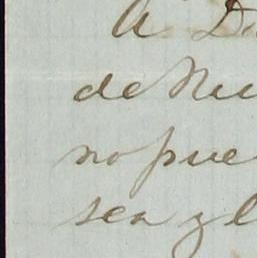 A D
de Nu
no pue
sea y l